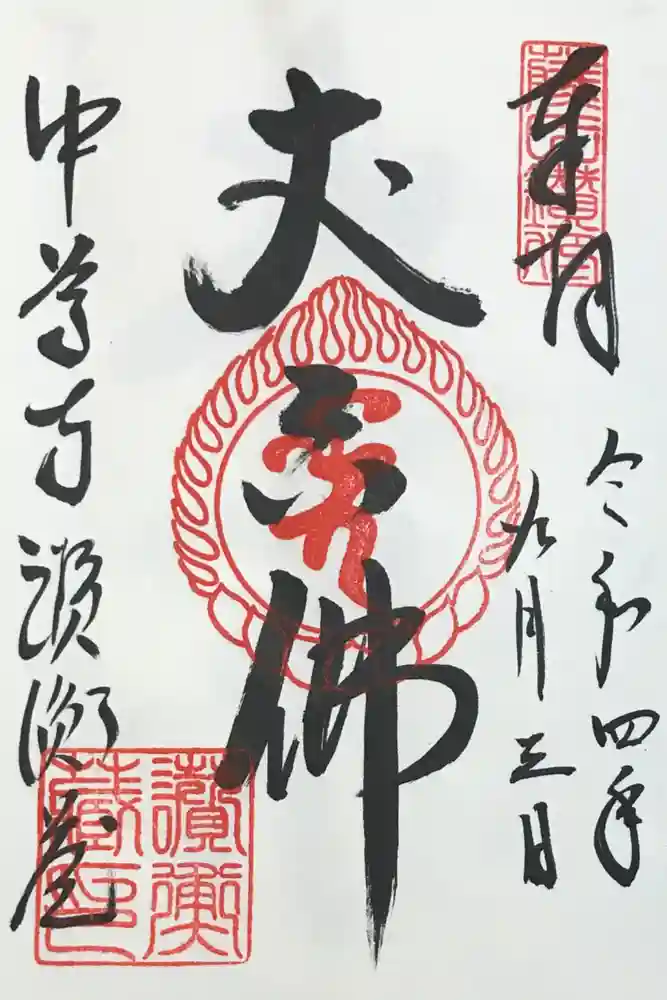 奉拝
令和四年
九月三日
丈六佛
中尊寺讃衡蔵
讃衡蔵印